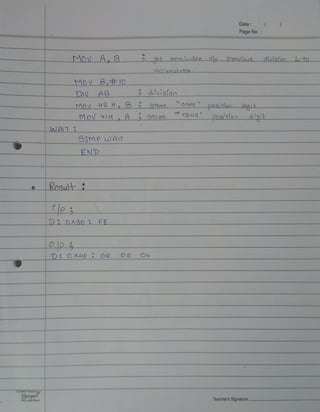 Date : / /
Page No. :
MOV A, B ; get remainder of previous division into
accumulator
MOV B, #10
DIV AB ; division
MOV 42 H, B ; store "ones" position digit
MOV 41H, A ; store "TENS" position digit
WAIT :
SJMP WAIT
END
• Result :
I/P ;
D: 0X30 : FE
O/P ;
D: 0X40 : 02 05 04
Teacher's Signature